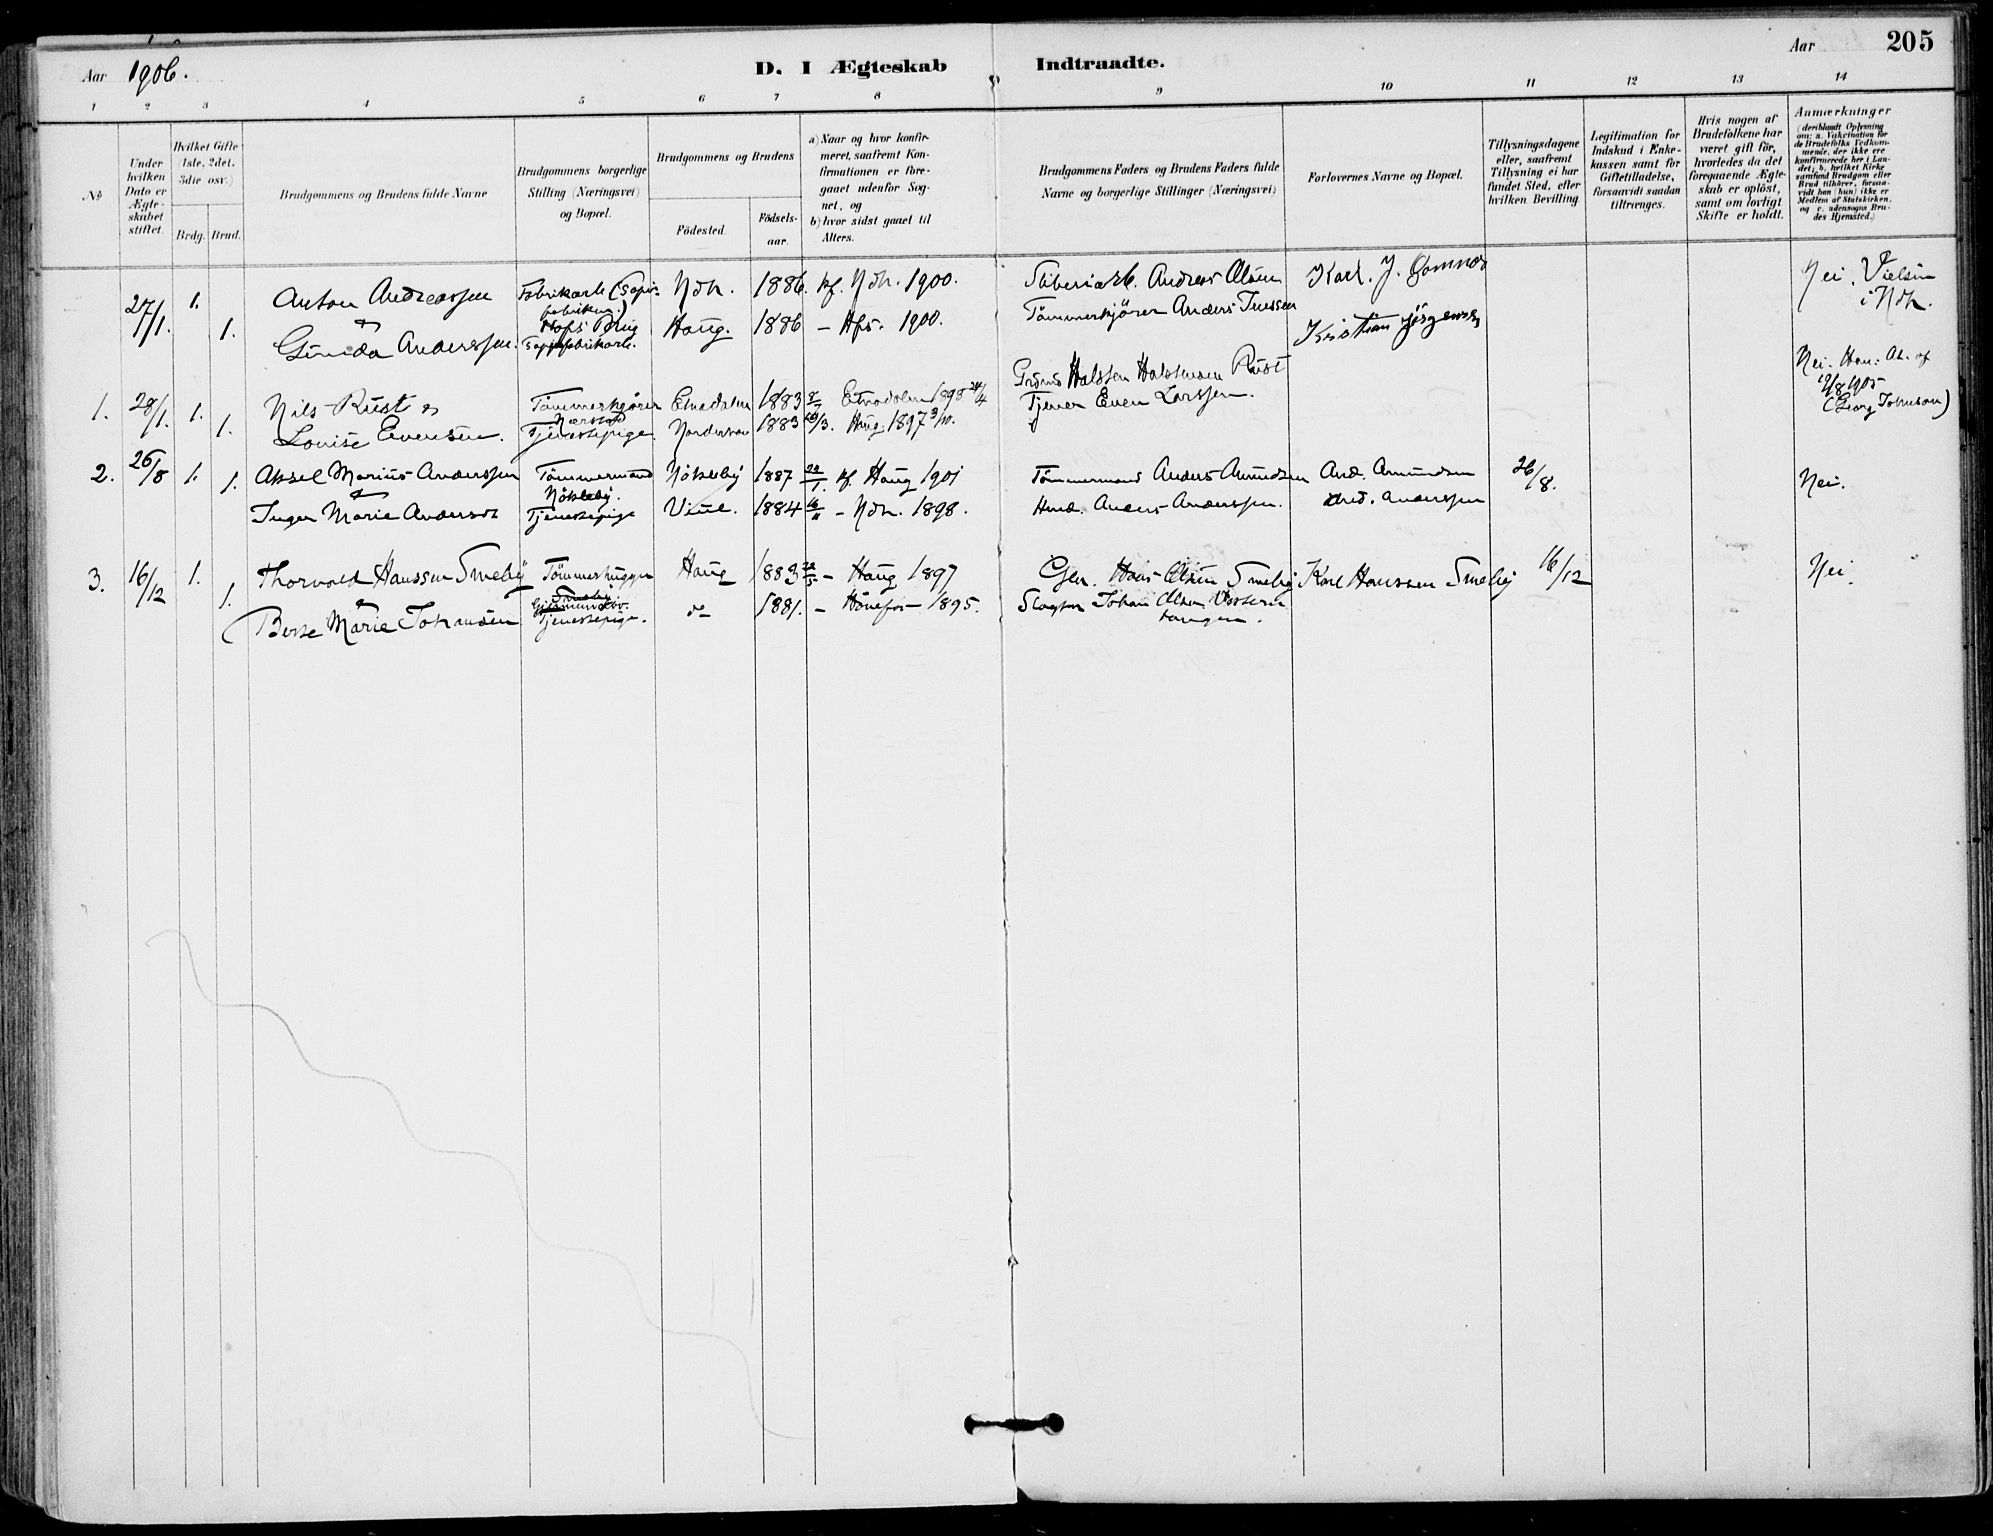 Aar 1906.
D. I Ægteskab Indtraadte.
Aar 205
1 2 3 4 5 6 7 8 9 10 11 12 13 14
No
Under hvilken Dato er Ægteskabet stiftet.
Hvilket Gifte (1ste, 2det, 3die osv.)
Brdg. Brud.
Brudgommens og Brudens fulde Navne
Brudgommens borgerlige Stilling (Næringsvei) og Bopæl.
Brudgommens og Brudens
Födested.
Födselsaar.
a) Naar og hvor konfirmeret, saafremt Konfirmationen er foregaaet udenfor Sognet, og
b) hvor sidst gaaet til Alters.
Brudgommens Faders og Brudens Faders fulde Navne og borgerlige Stillinger (Næringsvei)
Forlovernes Navne og Bopæl.
Tillysningsdagene eller, saafremt Tillysning ei har fundet Sted, efter hvilken Bevilling.
Legitimation for Indskud i Enkekassen samt for Giftetilladelse, forsaavidt saadan tiltrænges.
Hvis nogen af Brudefolkene har været gift för, hvorledes da det foregaaende Ægteskab er oplöst, samt om lovligt Skifte er holdt.
Anmærkninger (deriblandt Oplysning om: a. Vakcination for de Brudefolks Vedkommende, der ikke ere konfirmerede her i Landet; b. hvilket Kirkesamfund Brudgom eller Brud tilhörer, forsaavidt han (hun) ikke er Medlem af Statskirken, og c. udensogns Brudes Hjemsted.)
27/1. 1. Anton Andreassen Fabrikarb. Ndh. 1886. kf. Ndh. 1900. Andreas Olsen Karl. J. Nei. Vielsen i Ndh.
1. Anderssen. Haug. 1886 – Hfs. 1900. Tömmerkjörer Anders Kristian Jörgensen
1. 28/1. 1. Nils Rust og Tömmerkjörer Etnedalen 1883 Etnedalen 1898 Halsten Halstensen Rust Nei. 19/8 1905
1. Louise Evensen. Tjenestepige. 1883 Haug 1897 Tjener Even Larssen. (Georg Johnson)
2. 26/8 1. Aksel Marius Anderssen Tömmermand Nökleby. Nökleby 1887 kf. Haug 1901 Tömmermand Anders Amundsen And. Amundsen 26/8. Nei.
1. Inger Marie Andersdt Tjenestepige 1884 – Ndh. 1898. Anders Anderssen. And. Anderssen
3. 16/12 1. Thorvald Hanssen Smeby Tömmerhugger Smeby Haug 1883 – Haug 1897 Hans Olsen Smeby Karl Hanssen Smeby 16/12 Nei.
1. Marie Johansen Tjenestepige. do 1881. – Hönefos 1895. Slagter Johan Olsen